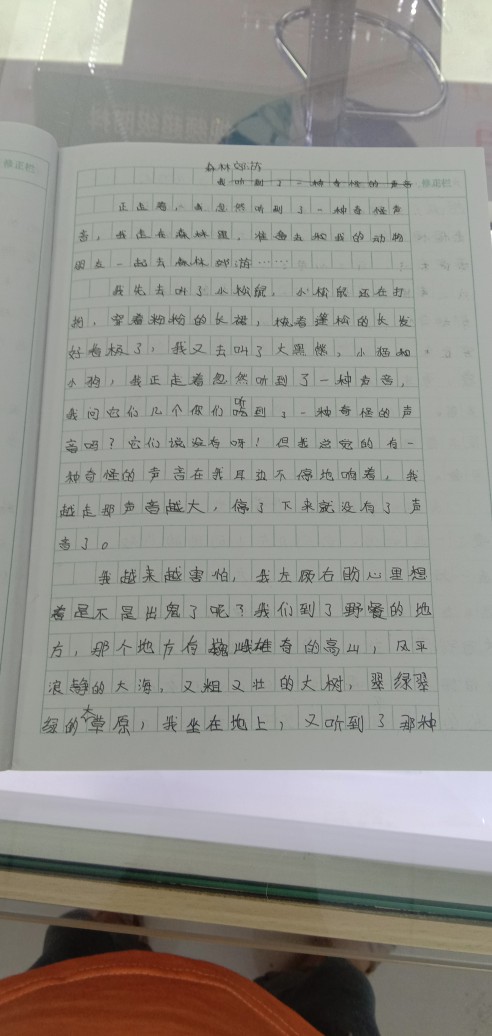 修正栏
森林郊游
我听到了一种奇怪的声音 修正栏
正走着，我忽然听到了一种奇怪声
音，我走在森林里，准备去掀我的动物
朋友一起去森林郊游……
我先去叫了小松鼠，小松鼠还在打
扮，穿着粉粉的长裙，梳着蓬松的长发
好看极了，我又去叫了大黑熊，小猫和
小狗，我正走着忽然听到了一种声音，
我问它们几个你们听到了一种奇怪的声
音吗？它们说没有呀！但我总觉的有一
种奇怪的声音在我耳边不停地响着，我
越走那声音越大，停了下来就没有了声
音了。
我越来越害怕，我左顾右盼心里想
着是不是出鬼了呢？我们到了野餐的地
方，那个地方有巍峨雄奇的高山，风平
浪静的大海，又粗又壮的大树，翠绿翠
绿的大草原，我坐在地上，又听到了那种